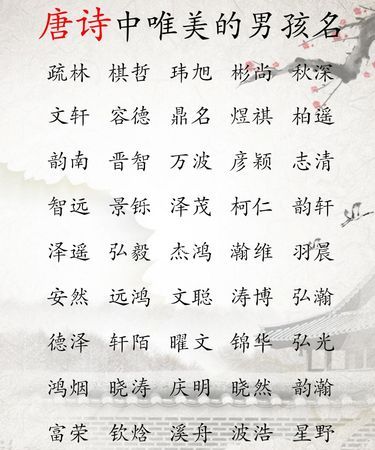 唐诗中唯美的男孩名
疏林 棋哲 玮旭 彬尚 秋深
文轩 容德 鼎名 煜祺 柏遥
韵南 晋智 万波 彦颖 志清
智远 景铄 泽茂 柯仁 韵轩
泽遥 弘毅 杰鸿 瀚维 羽晨
安然 远鸿 文聪 涛博 弘瀚
德泽 轩陌 曜文 锦华 弘光
鸿烟 晓涛 庆明 晓然 韵瀚
富荣 钦焓 溪舟 波浩 星野